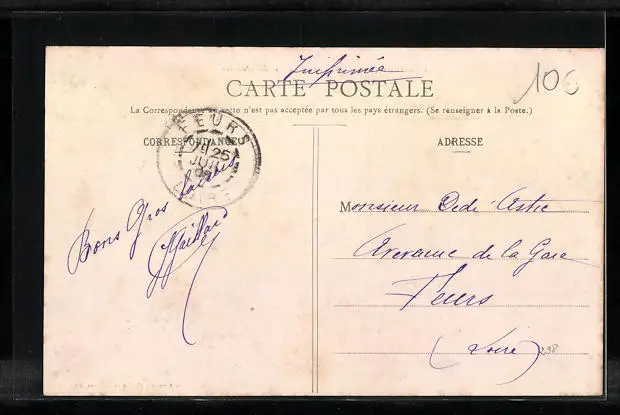 Imprimée
106
CARTE POSTALE
La Correspondance au recto n'est pas acceptée par tous les pays étrangers. (Se renseigner à la Poste.)
CORRESPONDANCE
ADRESSE
FEURS
25
JUIL
LOIRE
Bons Gros baisers
Monsieur Dédé Astic
Avenue de la Gare
Feurs
(Loire)
298